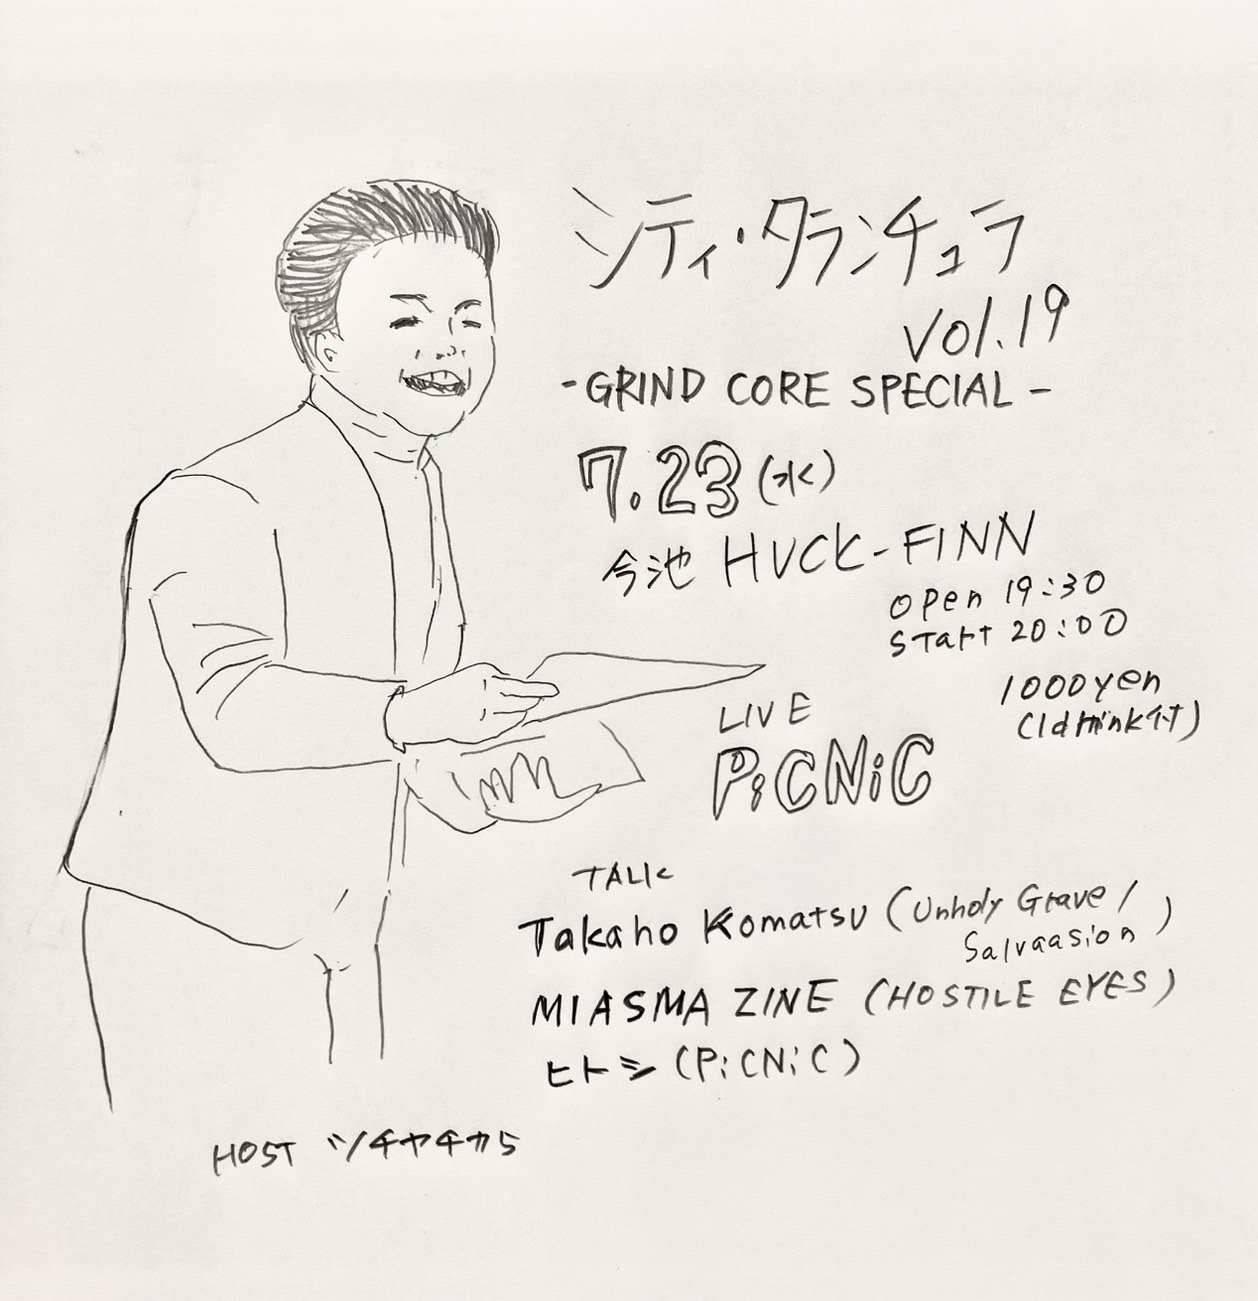 シティ・タランチュラ
vol.19
-GRIND CORE SPECIAL-
7.23(水)
今池 HUCK-FINN
open 19:30
START 20:00
1000yen
(1drink付)
LIVE
PiCNiC
TALK
Takaho Komatsu (Unholy Grave/
Salvaasion)
MIASMA ZINE (HOSTILE EYES)
ヒトシ(PiCNiC)
HOST ツチヤチカら